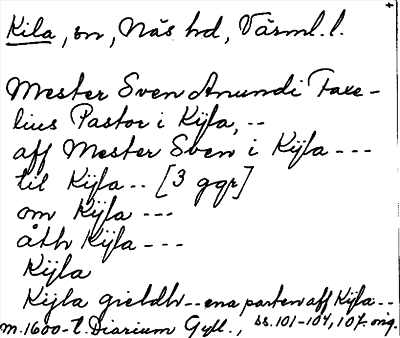 Kila, sn, Näs hd, Värml. l.
Mester Sven Anundi Faxe-
lius Pastor i Kÿla, --
aff Mester Sven i Kÿla ---
til Kÿla -- [3 ggr]
om Kÿla ---
åth Kÿla ---
Kijla
Kijla gieldh -- ena parten aff Kÿla --
m. 1600-t. Diarium Gyll., ss. 101-104, 107. orig.